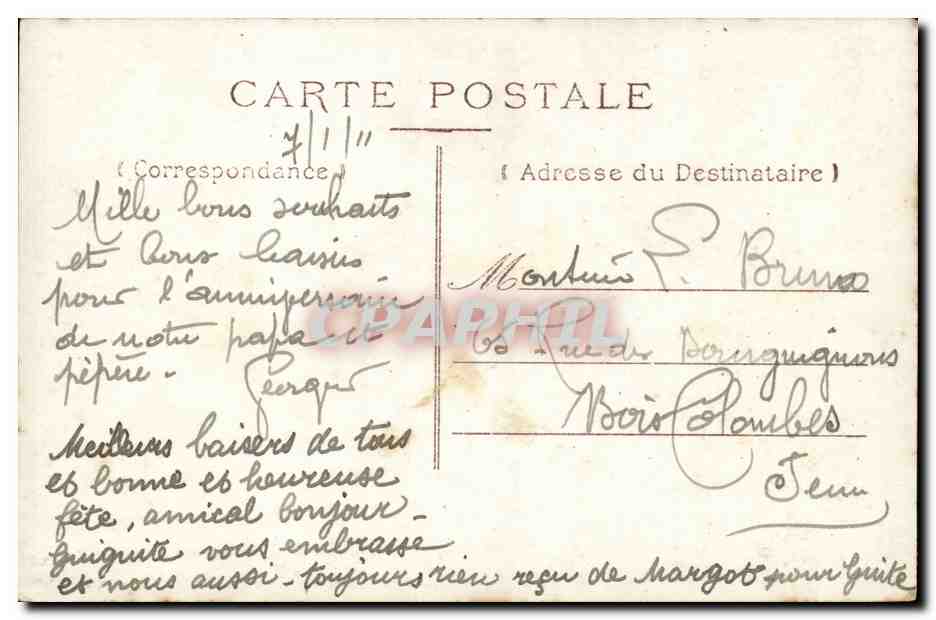 CARTE POSTALE
7/1/11
(Correspondance)
Mille bons souhaits
et bons baisers
pour l'anniversaire
de notre papa et
pépère -
Georges
Meilleurs baisers de tous
et bonne et heureuse
fête, amical bonjour -
Guiguite vous embrasse
et nous aussi - toujours rien reçu de Margot pour Guite
(Adresse du Destinataire)
Monsieur L. Bruno
Rue des Bourguignons
Bois Colombes
Seine
CPAPHIL